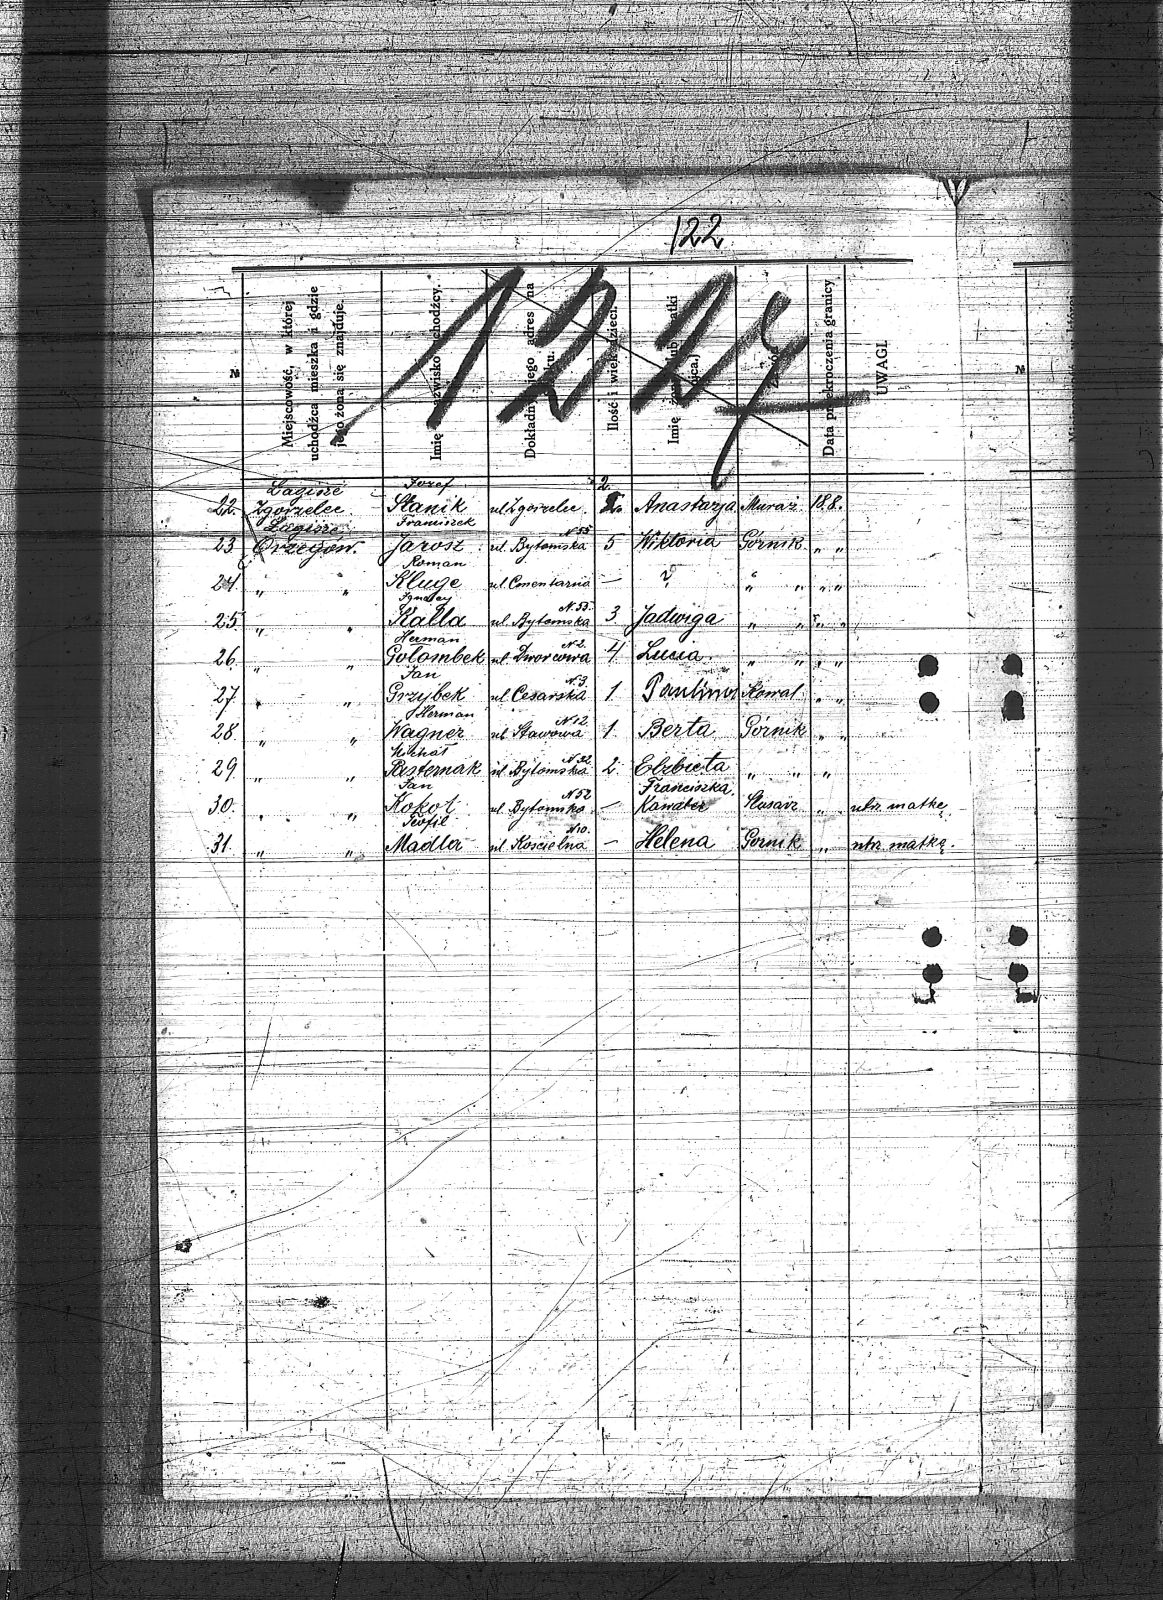 122
1227
№
Miejscowość, w której
uchodźca mieszka i gdzie
jego żona się znajduje.
Imię nazwisko uchodźcy.
Dokładny jego adres na
Ilość i wiek dzieci
Imię żony lub matki
Data przekroczenia granicy
UWAGI
№
22. Łagisze Zgorzelec. Jozef Stanik ul. Zgorzelec. 2. Anastazja Murarz 18.8.
23 Orzegów. Franciszek Jarosz ul. Bytomska N 55 5 Wiktoria Górnik „ „
24. „ „ Roman Kluge ul. Cmentarna — ? „ „ „ „
25. „ „ Ignacy Kalla ul. Bytomska N. 55. 3 Jadwiga „ „ „ „
26. „ „ Herman Golombek ul. Dworcowa N. 2. 4 Lucia „ „ „ „
27. „ „ Jan Grzybek ul. Cesarska N. 9. 1 Paulina Kowal „ „
28. „ „ Herman Wagner ul. Stawowa N 12. 1 Berta Górnik „ „
29. „ „ Michał Pasternak ul. Bytomska 2. Elżbieta „ „ „
30. „ „ Jan Kokot ul. Bytomska N 52 — Franciszka Slusarz „ utrz. matkę.
31. „ „ Teofil Madler ul. Koscielna N 10. — Helena Gornik „ utrz. matkę.